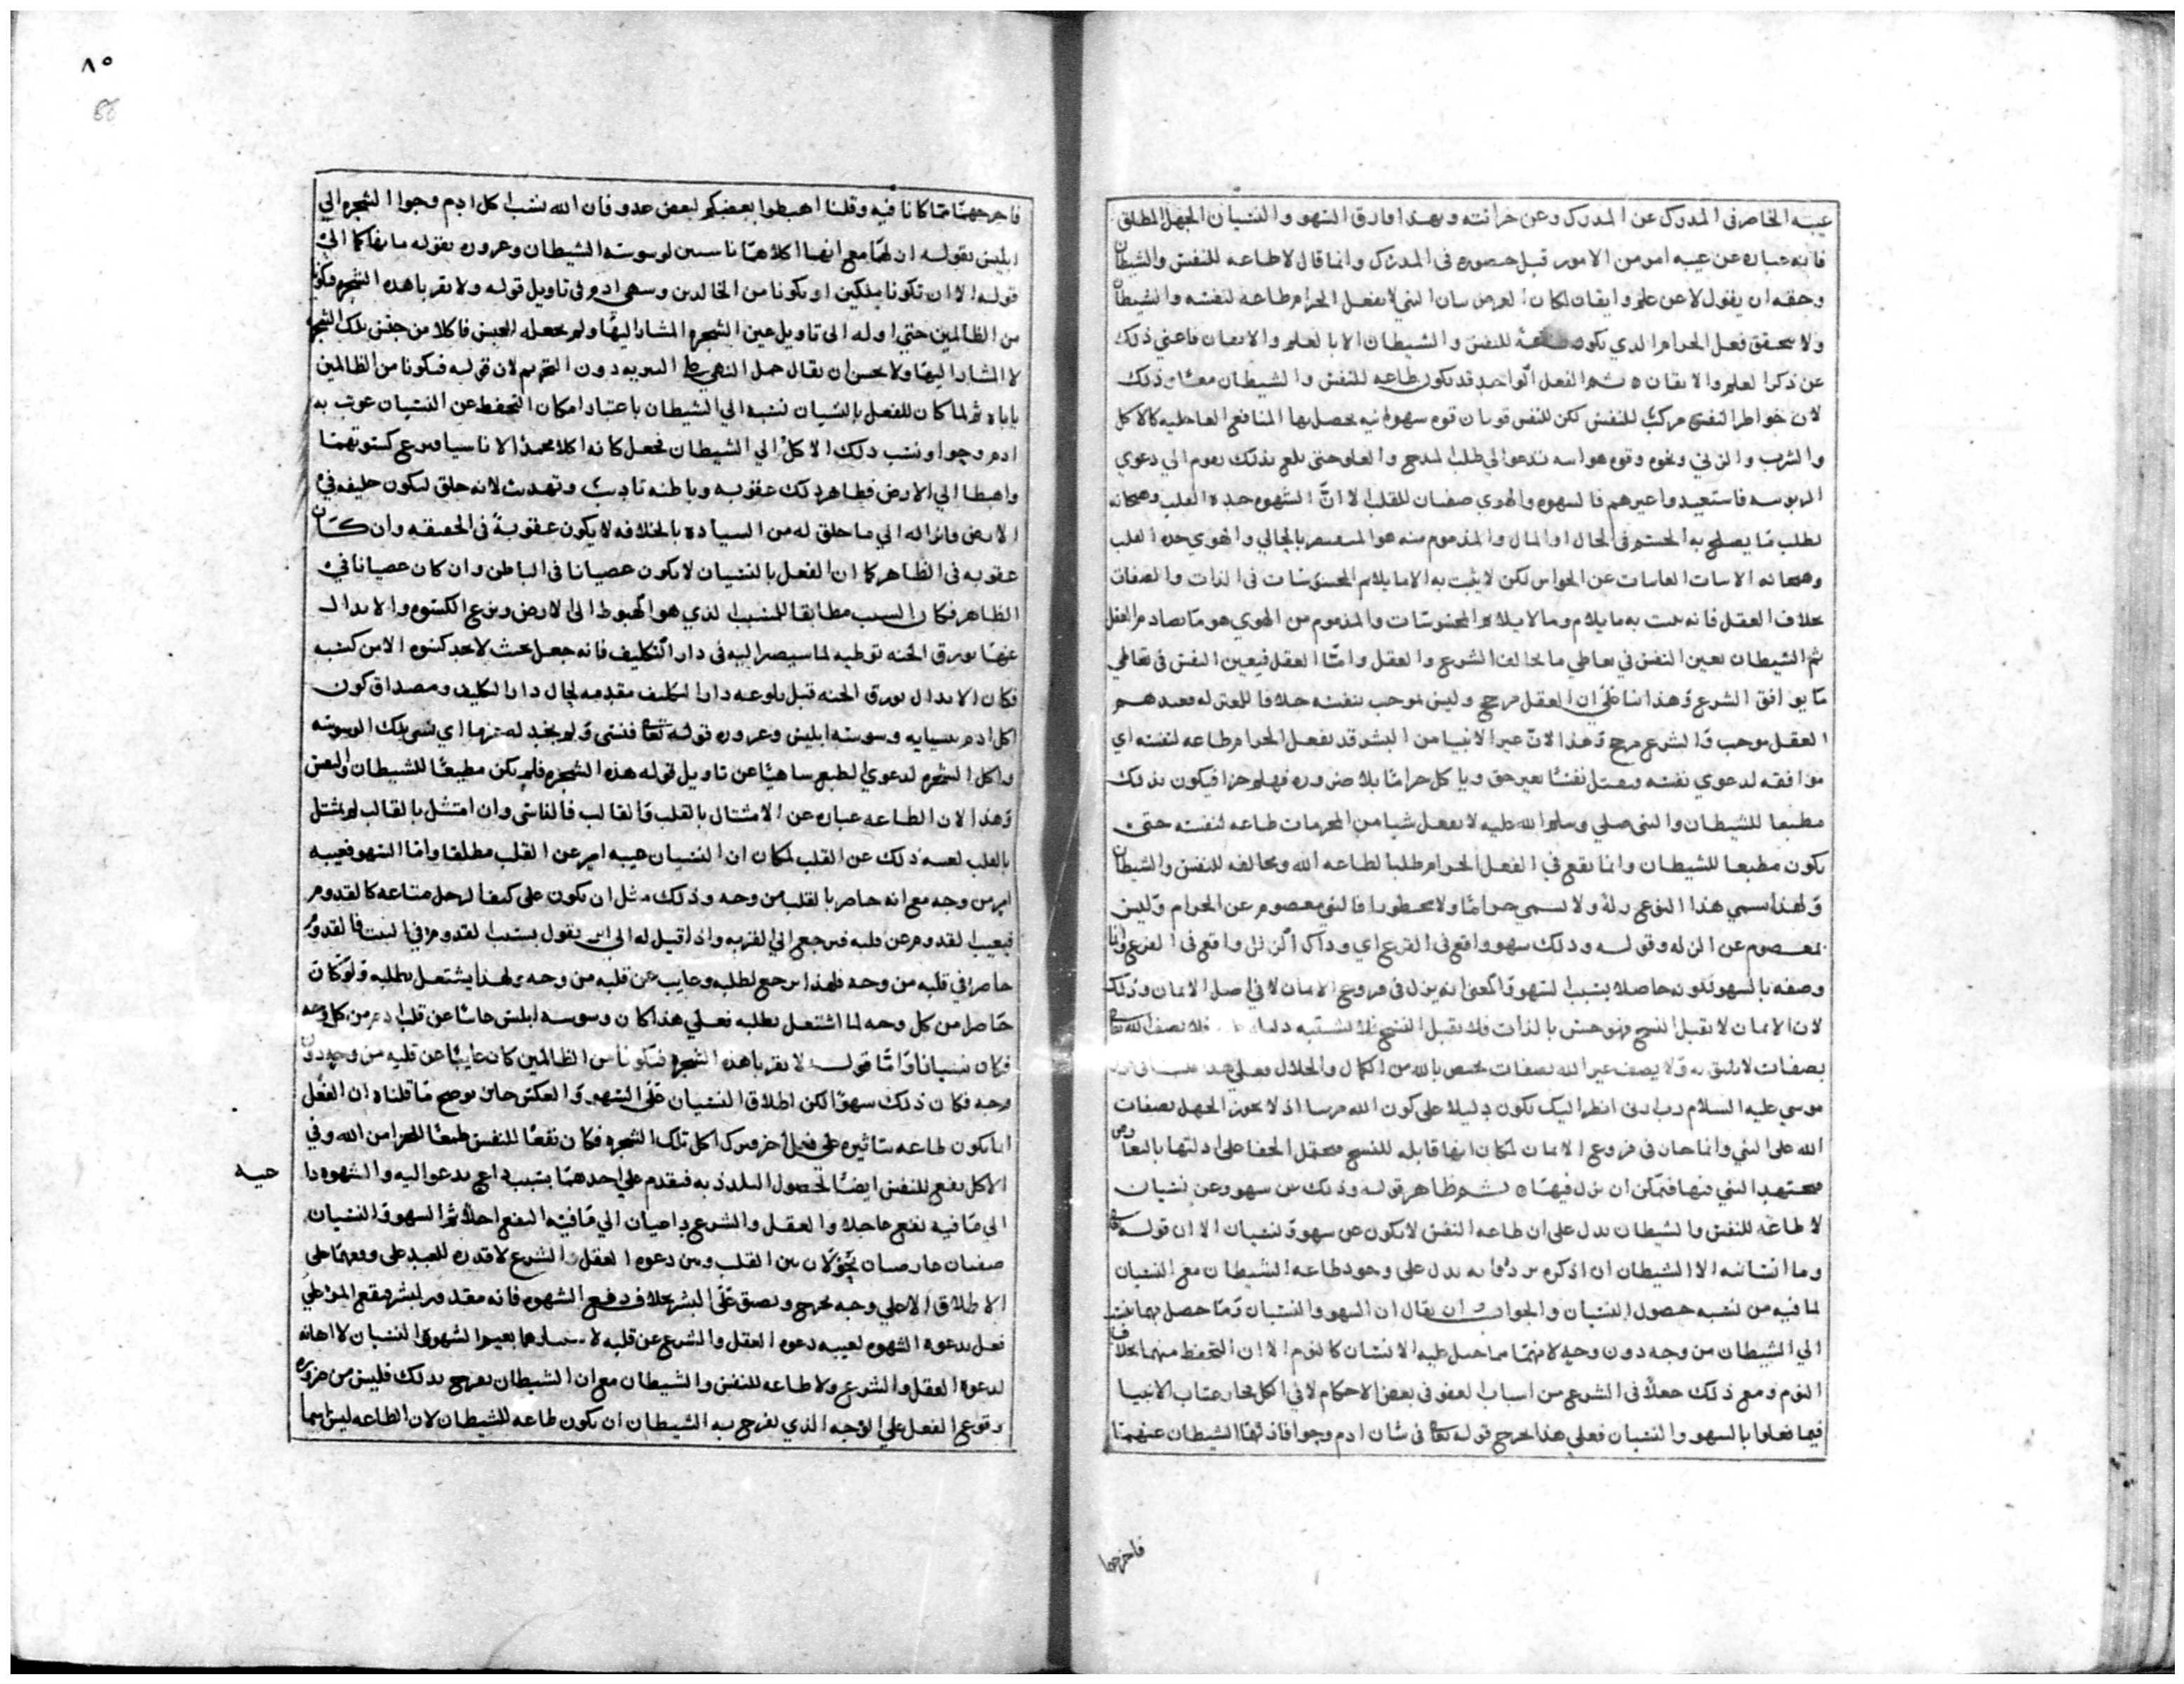 غيبه الحاضر فى المدرك عن المدرك وعن خزانته وبهذا فارق السهو والنسيان الجهل المطلق
فانه عباره عن غيبه امر من الامور قبل حضوره فى المدرك وانما قال لا طاعه للنفس والشيطان
وحقه ان يقول لا عن علم وايقان لكان الغرض بيان النبي لا يفعل الحرام طاعه لنفسه والشيطان
ولا يتحقق فعل الحرام الذي يكون طاعة للنفس والشيطان الا بالعلم والايقان فاغني ذلك
عن ذكر العلم والايقان ثم الفعل الواحد قد يكون طاعه للنفس والشيطان معا وذلك
لان خواطر النفس مركب للنفس لكن للنفس قوتان قوه شهوانيه يحصل بها المنافع العاجليه كالاكل
والشرب والزني ونحوه وقوه هوائيه تدعو الي طلب المدح والعلو حتى يبلغ بذلك يقوم الي دعوي
الربوبيه فاستعبدوا غيرهم فالشهوه والهوي صفتان للقلب الا انّ الشهوه حده القلب وهيجانه
لطلب ما يصلح به الجسم فى الحال او المال والمذموم منه هو المفسر بالحالي والهوي حده القلب
وهيجانه الاسات الغايبات عن الحواس لكن لا يثبت به الا ما يلايم المحسوسات فى الذات والصفات
بخلاف العقل فانه يثبت به ما يلايم وما لا يلايم المحسوسات والمذموم من الهوي هو ما يصادم العقل
ثم الشيطان يعين النفس في تعاطي ما يخالف الشرع والعقل وامّا العقل فيعين النفس فى تعاطي
ما يوافق الشرع وهذا بنا علي ان العقل مرجح وليس بموجب بنفسه خلافا للمعتزله فعندهم
العقل موجب والشرع مرجح وهذا لانّ غير الانبيا من البشر قد يفعل الحرام طاعه لنفسه اي
موافقه لدعوي نفسه فيقتل نفسا بغير حق وياكل حراما بلا ضروره فهلم جرا فيكون بذلك
مطيعا للشيطان والنبى صلي وسلم الله عليه لا يفعل شيا من المحرمات طاعه لنفسه حتى
يكون مطيعا للشيطان وانما يقع في الفعل الحرام طلبا لطاعه الله ومخالفه للنفس والشيطان
ولهذا سمي هذا النوع زله ولا يسمي حراما ولا محظورا فالنبي معصوم عن الحرام وليس
بمعصوم عن الزله وقوله وذلك سهو واقع فى الفرع اي وذاك الزلل واقع فى الفرع وانما
وصفه بالسهو لكونه حاصلا بسبب السهو والمعنى انه يزل فى فروع الايمان لا فى اصل الايمان وذلك
لان الايمان لا يقبل النسخ فهو حسن بالذات فلا يقبل النسخ فلا يشتبه دليله فلا يصف الله تعالى
بصفات لا تليق به ولا يصف غير الله بصفات تختص بالله من الكمال والجلال فعلي هذا
موسي عليه السلام رب ارنى انظر اليك يكون دليلا على كون الله مرييا اذ لا يجوز الجهل بصفات
الله على النبي وانما جاز فى فروع الايمان لكان انها قابله للنسخ فيحتمل الخفا على ادلتها بالتعارض
فيجتهد النبي فيها فيمكن ان يزل فيها ثم ظاهر قوله وذلك من سهو وعن نسيان
لا طاعه للنفس والشيطان يدل على ان طاعه النفس لا يكون عن سهو ونسيان الا ان قوله تعالى
وما انسانيه الا الشيطان ان اذكره يدل على وجود طاعه الشيطان مع النسيان
لما فيه من نسبه حصول النسيان والجواب ان يقال ان السهو والنسيان وما حصل بهما ينسب
الي الشيطان من وجه دون وجه لانهما مما جبل عليه الانسان كالنوم الا ان التحفظ منهما بخلاف
النوم ومع ذلك جعلا فى الشرع من اسباب العفو فى بعض الاحكام لا في الكل فجاز عتاب الانبيا
فيما فعلوا بالسهو والنسيان فعلي هذا يخرج قوله تعالى فى شان ادم وحوا فازلهما الشيطان عنهما
فاخرجهما
٨٥
فاخرجهما مما كانا فيه وقلنا اهبطوا بعضكم لبعض عدو فان الله نسب اكل ادم وحوا الشجره الي
ابليس بقوله ازلهما مع انهما اكلاهما ناسيين لوسوسه الشيطان وغروره بقوله ما نهاكما الي
قوله الا ان تكونا ملكين او تكونا من الخالدين وسهي ادم فى تاويل قوله ولا تقربا هذه الشجره فتكونا
من الظالمين حتي اوله الى تاويل عين الشجره المشار اليها ولم يجعله للجنس فاكلا من جنس تلك الشجره
لا المشار اليها ولا يحسن ان يقال حمل النهي على التنزيه دون التحريم لان قوله فتكونا من الظالمين
ياباه ثم لما كان للفعل بالنسيان نسبه الي الشيطان باعتبار امكان التحفظ عن النسيان عوتب به
ادم وحوا ونسب ذلك الاكل الي الشيطان فجعل كانه اكلا محمدا لا ناسيا فنزع كسوتهما
واهبطا الي الارض فظاهر ذلك عقوبه وباطنه تاديب وتهذيب لانه خلق ليكون خليفه في
الارض فانزاله الي ما خلق له من السياده بالخلافه لا يكون عقوبة فى الحقيقه وان كان
عقوبه فى الظاهر كما ان الفعل بالنسيان لا يكون عصيانا فى الباطن وان كان عصيانا في
الظاهر فكان السبب مطابقا للمسبب الذي هو الهبوط الى الارض ونزع الكسوه والابدال
عنها بورق الجنه توطيه لما سيصير اليه فى دار التكليف فانه جعل بحيث لا يجد كسوه الا من كسبه
فكان الابدال بورق الجنه قبل بلوغه دار التكليف مقدمه لحال دار التكليف ومصداق كون
اكل ادم بنسيانه وسوسه ابليس وغروره قوله تعالى فنسي ولم نجد له عزما اي نسي تلك الوسوسه
واكل الشجره لدعوي الطبع ساهيا عن تاويل قوله هذه الشجره فلم يكن مطيعا للشيطان والنفس
وهذا لان الطاعه عباره عن الامتثال بالقلب والقالب فالناسي وان امتثل بالقالب لم يمتثل
بالقلب لغيبه ذلك عن القلب لكان ان النسيان غيبه امر عن القلب مطلقا واما السهو فغيبه
امر من وجه مع انه حاضر بالقلب من وجه وذلك مثل ان يكون على كتف الرجل متاعه كالقدوم
فيغيب القدوم عن قلبه فيرجع الي القريه واذا قيل له الي اين يقول بسبب القدوم في البيت فالقدوم
حاضر في قلبه من وجه فلهذا يرجع لطلبه وغايب عن قلبه من وجه ولهذا يشتغل بطلبه ولو كان
حاضرا من كل وجه لما اشتغل بطلبه فعلي هذا كان وسوسه ابليس غايبا عن قلب ادم من كل وجه
فكان نسيانا وامّا قوله لا تقربا هذه الشجره فتكونا من الظالمين كان غايبا عن قلبه من وجه دون
وجه فكان ذلك سهوا لكن اطلاق النسيان على السهو والعكس جائز يوضح ما قلناه ان الفعل
انما يكون طاعه بتاثيره على فعل اخر فترك اكل تلك الشجره فكان نفعا للنفس طبعا للجزا من الله وفي
الاكل نفع للنفس ايضا لحصول التلذذ به فيقدم علي احدهما بسبب داع يدعو اليه والشهوه داعيه
الي ما فيه نفع عاجلا والعقل والشرع داعيان الي ما فيه النفع اجلا ثم السهو والنسيان
صفتان عارضتان يحولان بين القلب وبين دعوه العقل والشرع لا قدره للعبد على دفعهما على
الاطلاق الا علي وجه يحرج ويضيق على البشر بخلاف دفع الشهوه فانه مقدور للبشر فيقع المرا علي
فعل بدعوه الشهوه لغيبه دعوه العقل والشرع عن قلبه لا بغير الشهوه والنسيان لا اهانه
لدعوه العقل والشرع ولا طاعه للنفس والشيطان مع ان الشيطان يفرح بذلك فليس من ضروره
وقوع الفعل علي الوجه الذي يفرح به الشيطان ان يكون طاعه للشيطان لان الطاعه ليس اسما